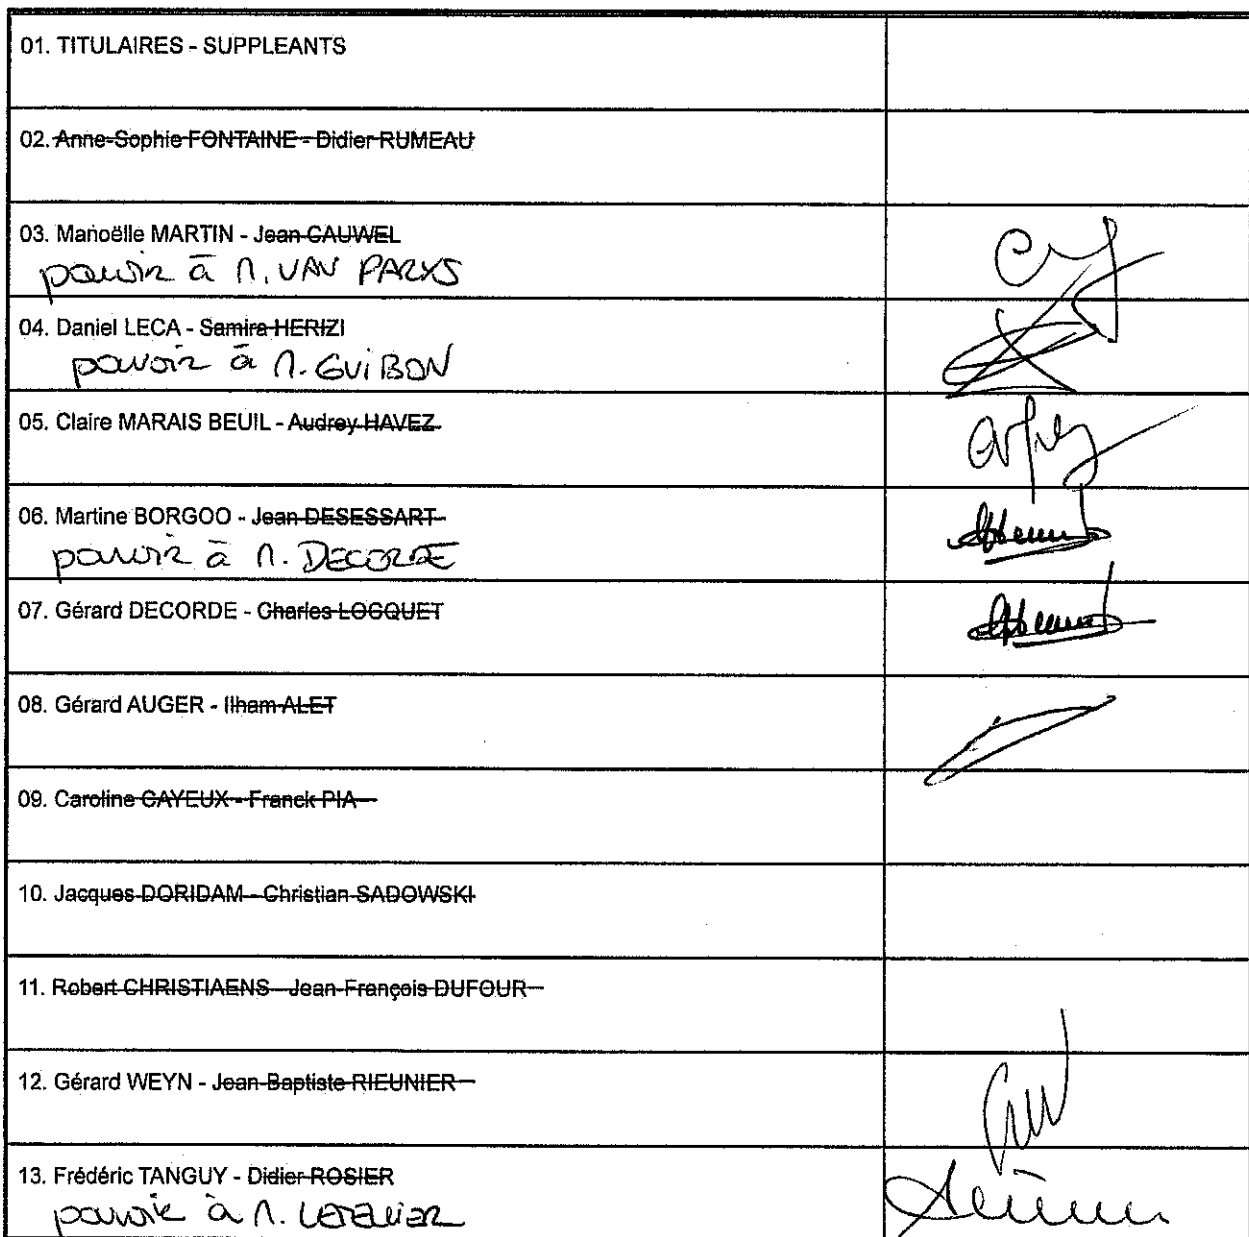 01. TITULAIRES - SUPPLEANTS
02. Anne-Sophie FONTAINE - Didier RUMEAU
03. Manoëlle MARTIN - Jean CAUWEL
pouvoir à M. VAN PARYS
04. Daniel LECA - Samira HERIZI
pouvoir à M. GUIBON
05. Claire MARAIS BEUIL - Audrey HAVEZ
06. Martine BORGOO - Jean DESESSART
pouvoir à M. DECORDE
07. Gérard DECORDE - Charles LOCQUET
08. Gérard AUGER - Ilham ALET
09. Caroline CAYEUX - Franck PIA
10. Jacques DORIDAM - Christian SADOWSKI
11. Robert CHRISTIAENS - Jean-François DUFOUR
12. Gérard WEYN - Jean-Baptiste RIEUNIER
13. Frédéric TANGUY - Didier ROSIER
pouvoir à M. LETELLIER